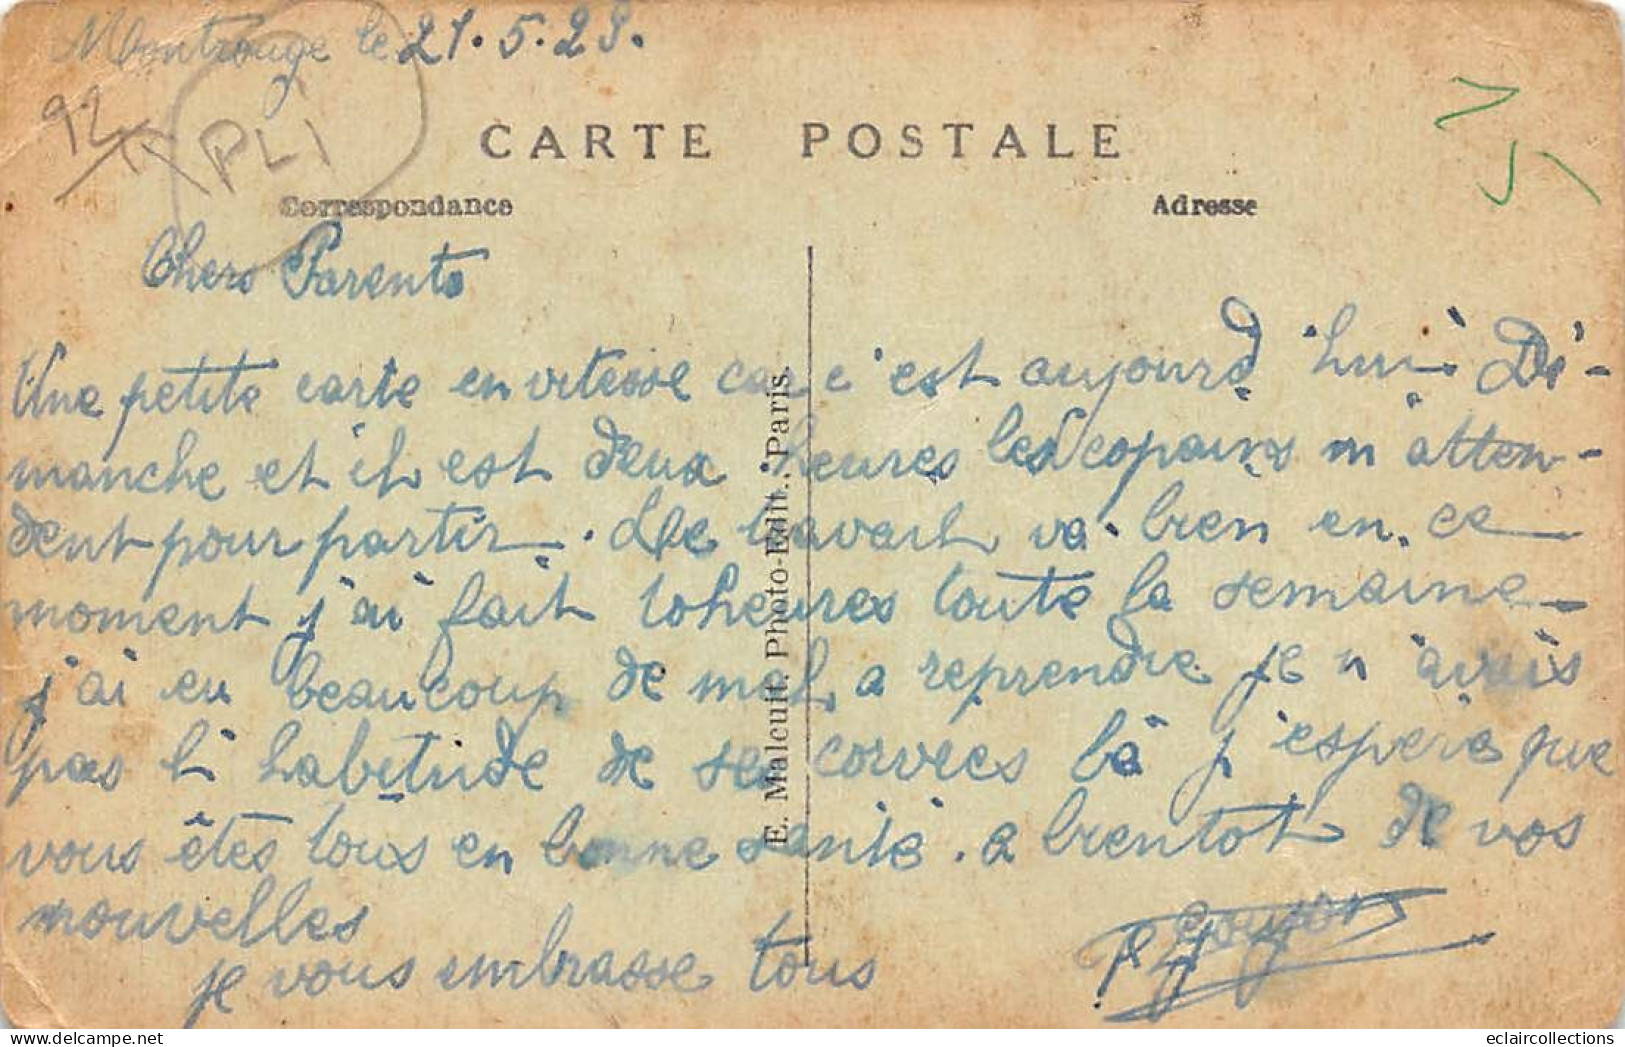 Montrouge le 21.5.23.
92
PLI
CARTE POSTALE
Correspondance
Adresse
Chers Parents
Une petite carte en vitesse car c'est aujourd'hui Di-
manche et il est deux heures les copains m'atten-
dent pour partir. Le travail va bien en ce
moment j'ai fait 10 heures toute la semaine
j'ai eu beaucoup de mal a reprendre je n'avais
pas l'habitude de ses corvées là j'espère que
vous êtes tous en bonne santé. a bientot de vos
nouvelles
je vous embrasse tous
E. Malcuit. Photo-Edit., Paris.
eclaircollections